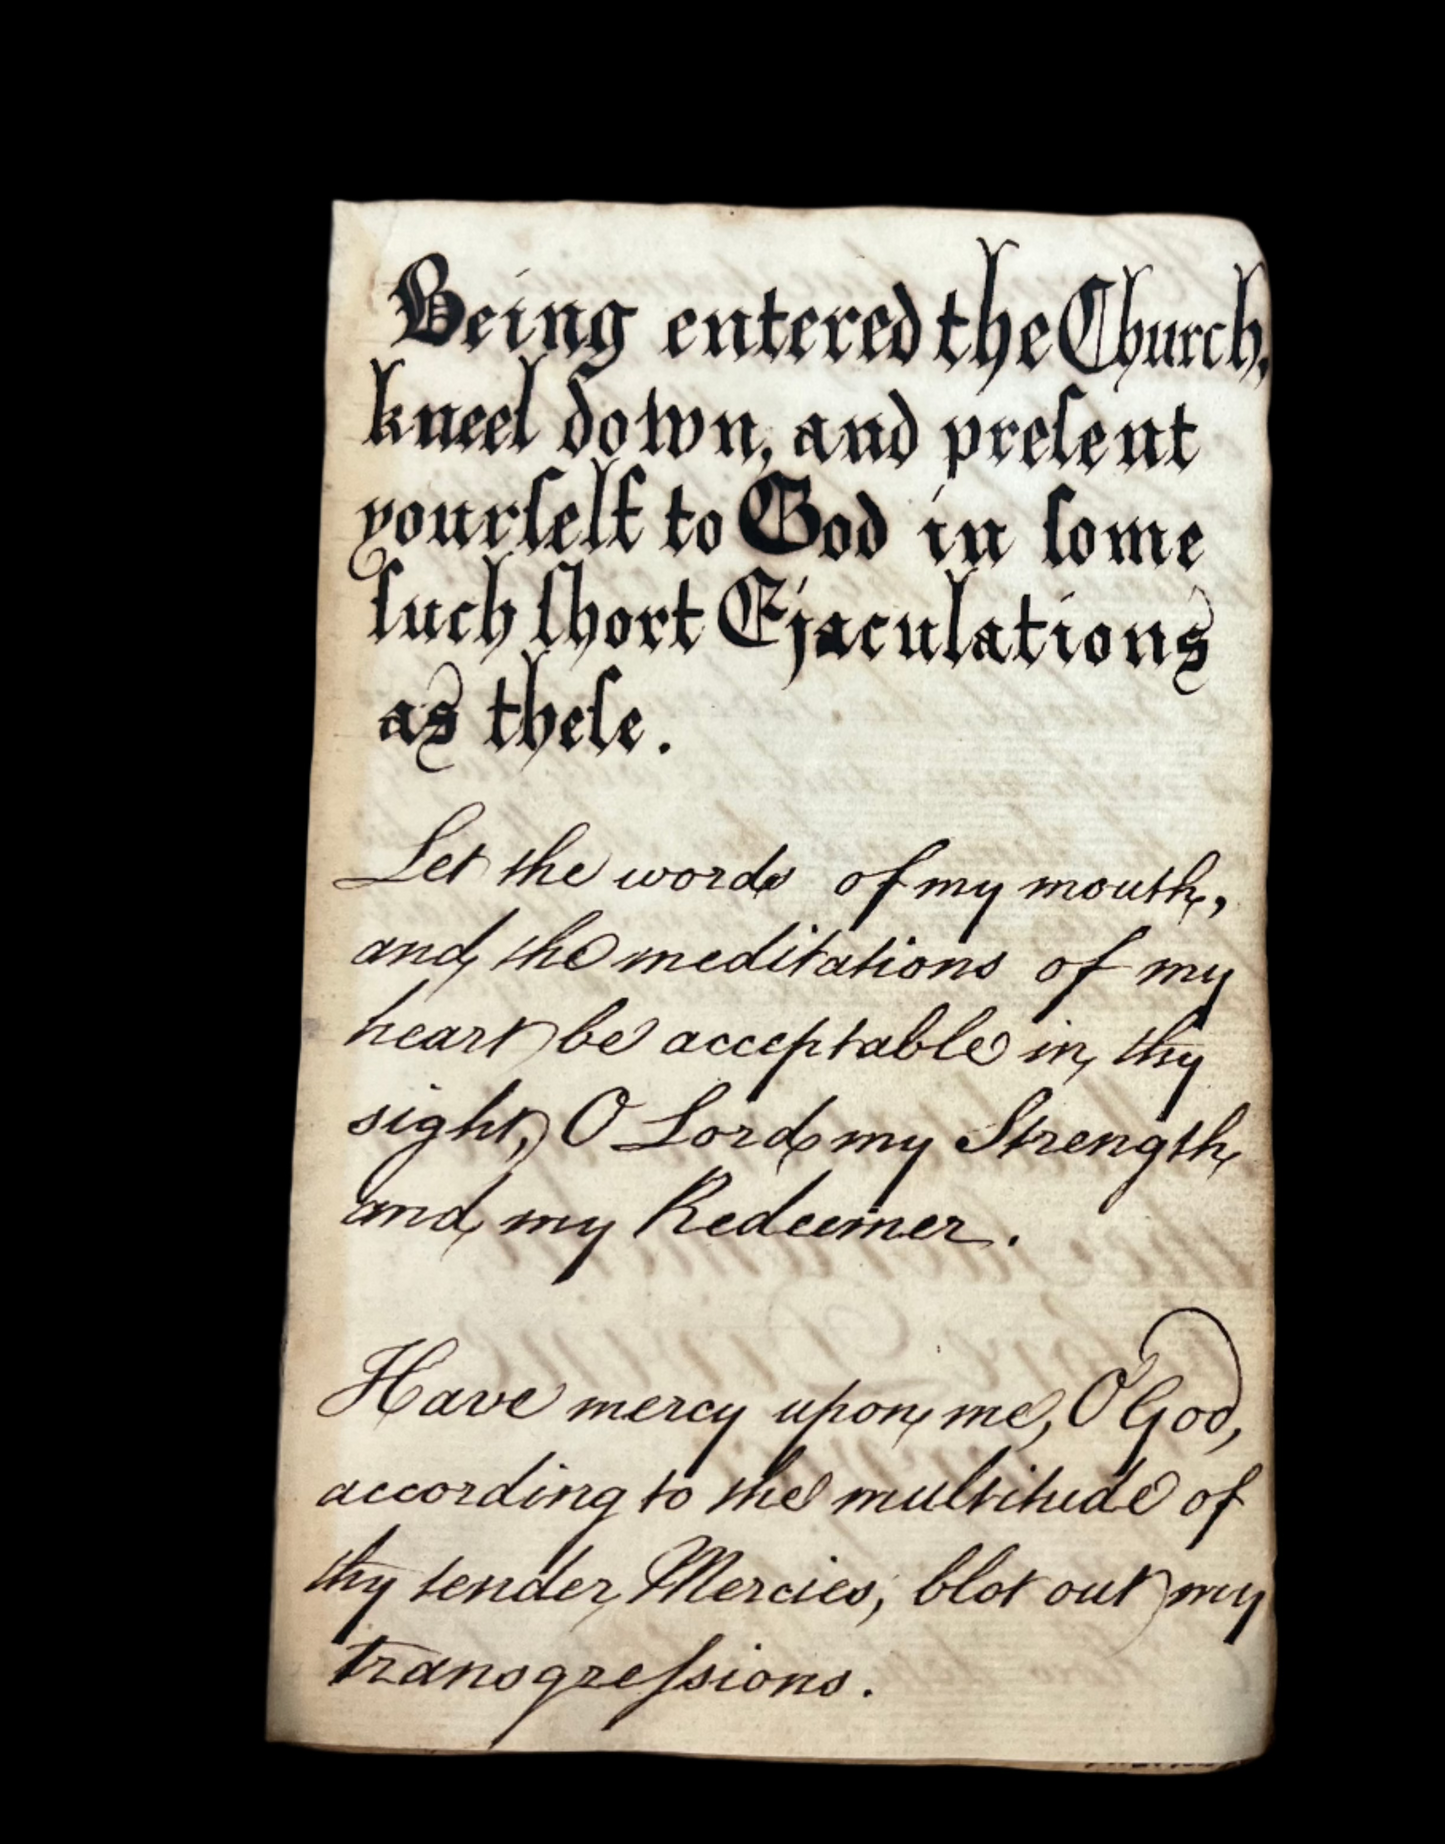 Being entered the Church,
kneel down, and preſent
yourſelf to God in ſome
ſuch ſhort Ejaculations
as theſe.
Let the words of my mouth,
and the meditations of my
heart be acceptable in thy
sight, O Lord my Strength
and my Redeemer.
Have mercy upon me, O God,
according to the multitude of
thy tender Mercies, blot out my
transgreſsions.